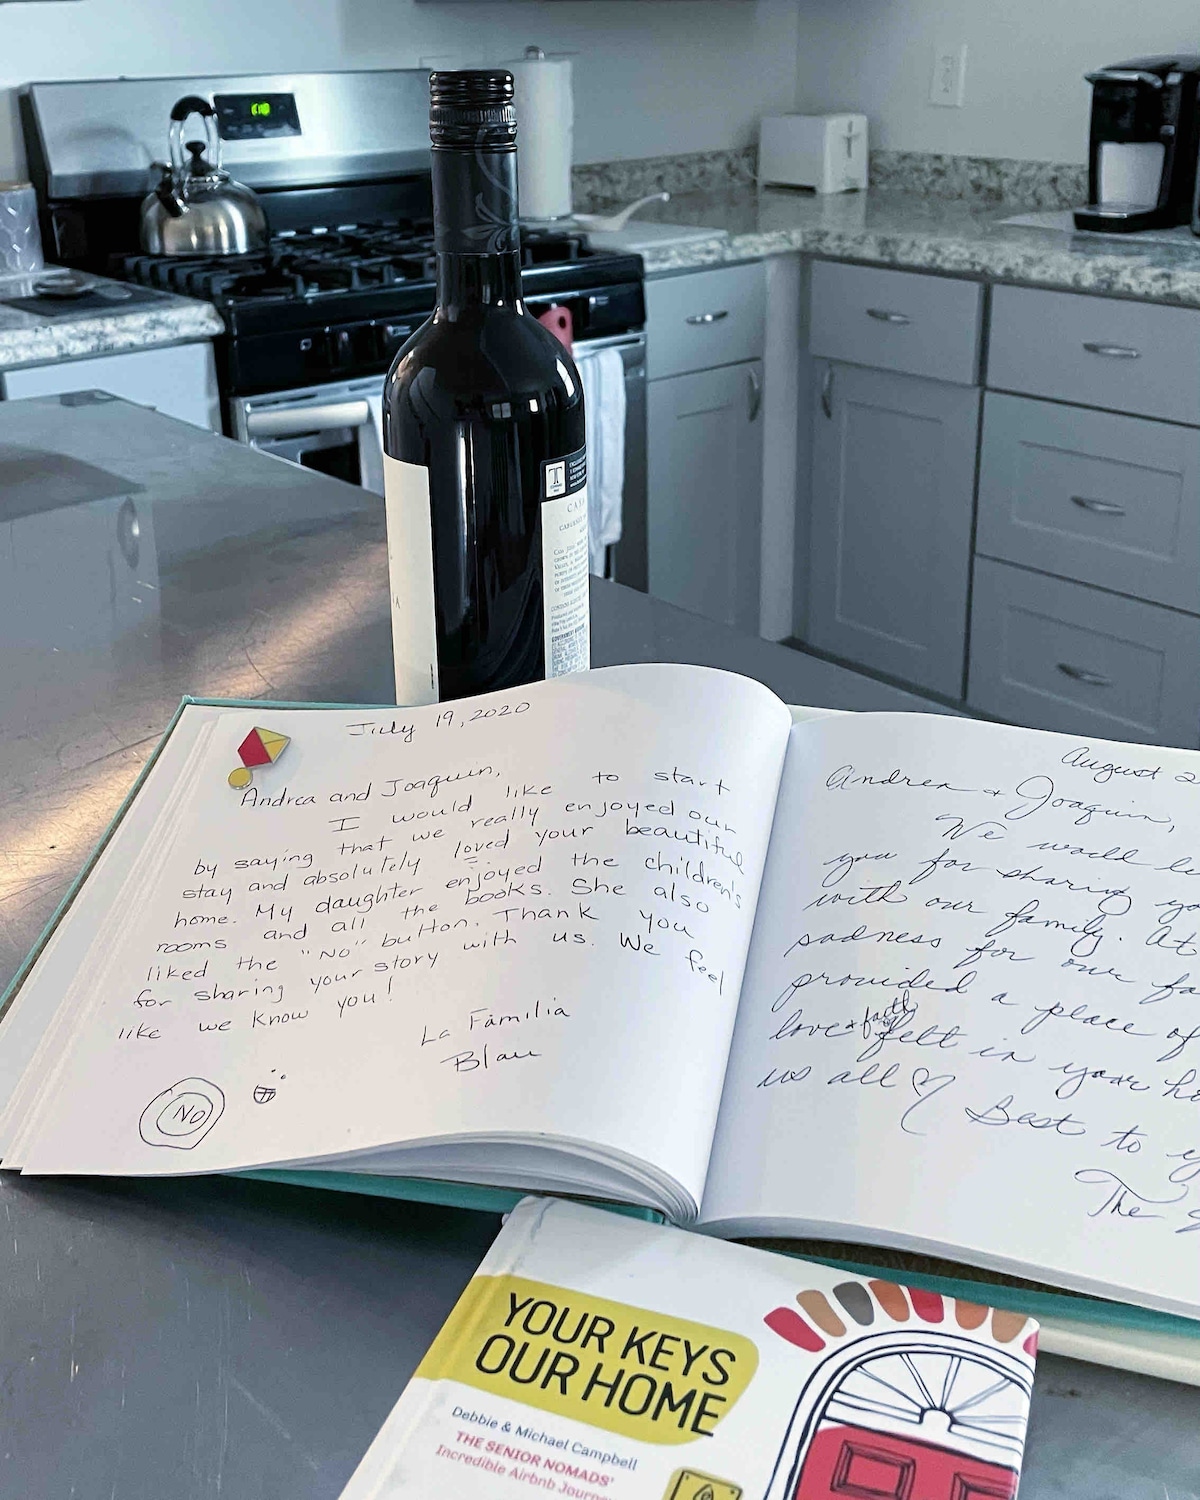 July 19, 2020
Andrea and Joaquin,
I would like to start
by saying that we really enjoyed our
stay and absolutely loved your beautiful
home. My daughter enjoyed the children's
rooms and all the books. She also
liked the "NO" button. Thank you
for sharing your story with us. We feel
like we know you!
La Familia
Blau
NO
August 2
Andrea + Joaquin,
We would
you for sharing
with our family. At
sadness for our
provided a place of
love + faith felt in your
us all
Best to
The
YOUR KEYS
OUR HOME
Debbie & Michael Campbell
THE SENIOR NOMADS'
Incredible Airbnb
GOVERNMENT